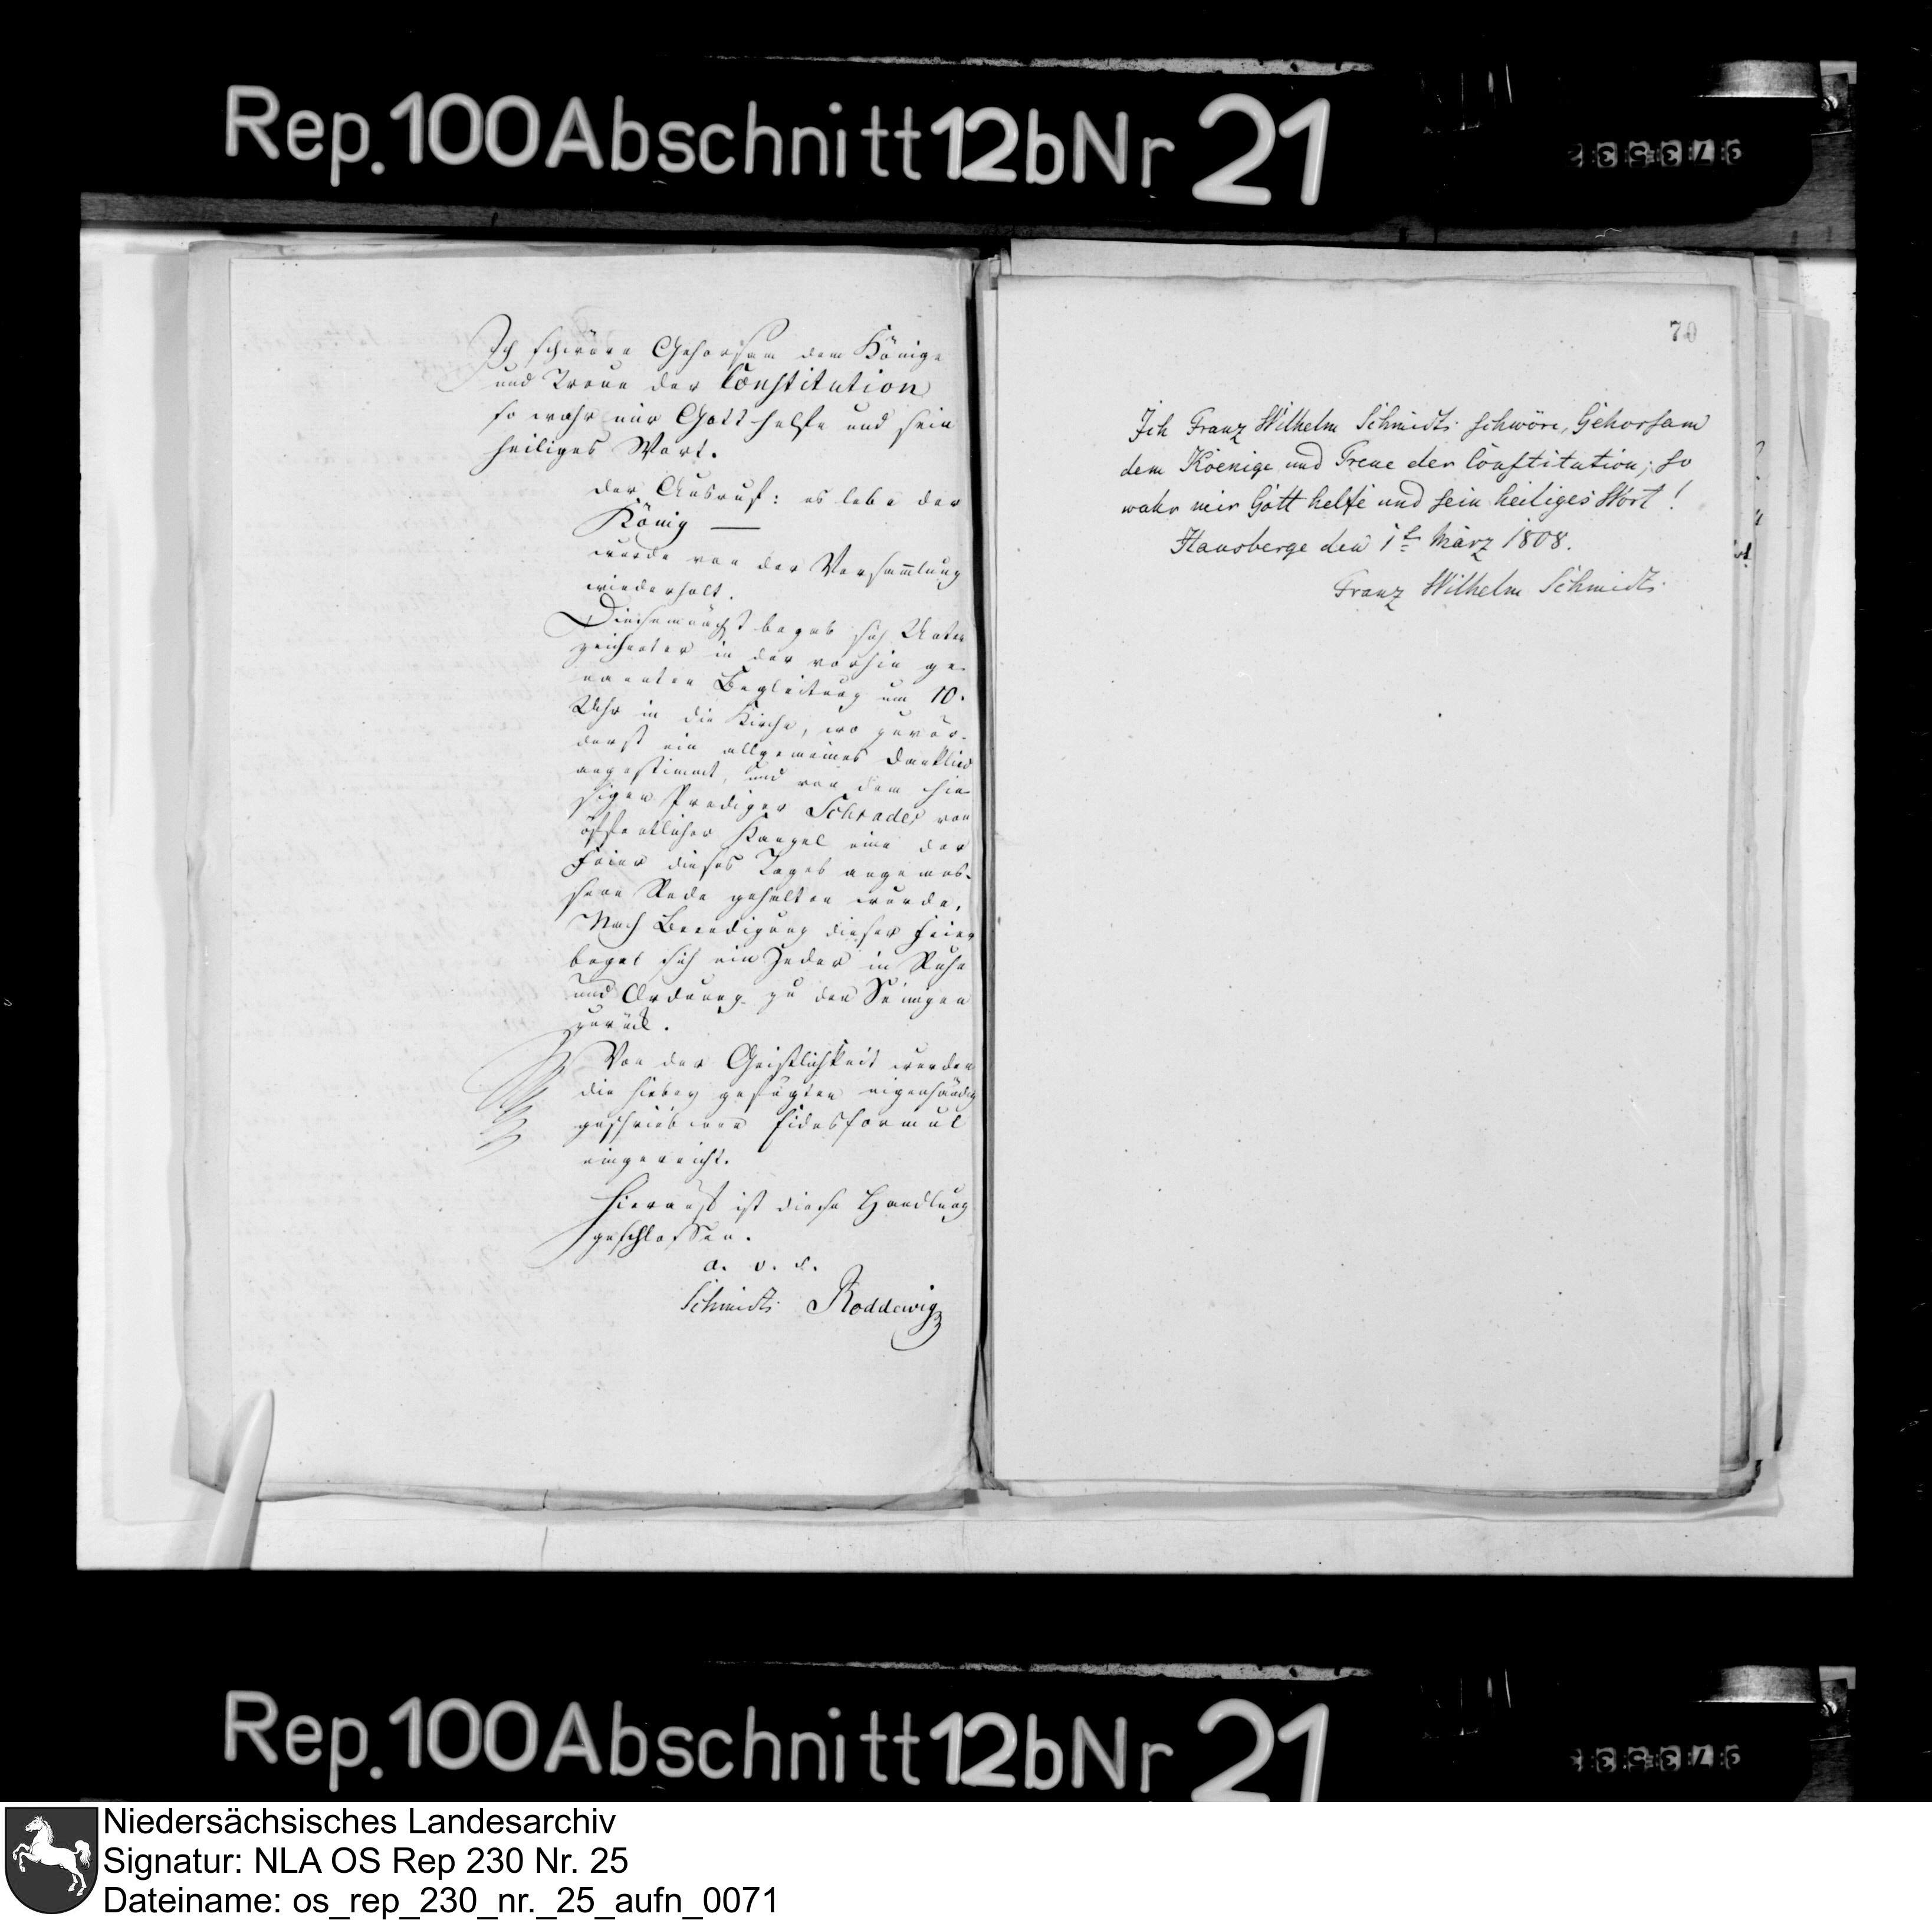 Rep. 100 Abschnitt 12b Nr 21
Ich schwöre Gehorsam dem Könige
und Treue der Constitution
so wahr mir Gott helfe und sein
heiliges Wort.
der Ausruf: es lebe der
König —
wurde von der Versam̅lung
wiederholt.
Diesemnächst begab sich Unter
zeichneter in der vorhin ge-
nannten Begleitung um 10.
Uhr in die Kirche, wo zuvör-
derst ein allgemeines Danklied
angestimmt, und von dem hie
sigen Prediger Schrader von
öffentlicher Kanzel eine der
Feier dieses Tages angemes-
sene Rede gehalten wurde.
Nach Beendigung dieser Feier
begab sich ein Jeder in Ruhe
und Ordnung zu den Seinigen
zurück.
Von der Geistlichkeit wurden
die hiebey gefügten eigenhändig
geschriebenen Eidesformul
eingereicht.
Hierauf ist diese Handlung
geschlossen.
a. u. s.
Schmidts Roddewig
70
Ich Franz Wilhelm Schmidts schwöre, Gehorsam
dem Koenige und Treue der Constitution; so
wahr mir Gott helfe und sein heiliges Wort!
Hausberge den 1t März 1808.
Franz Wilhelm Schmidts
Rep. 100 Abschnitt 12b Nr 21
Niedersächsisches Landesarchiv
Signatur: NLA OS Rep 230 Nr. 25
Dateiname: os_rep_230_nr._25_aufn_0071